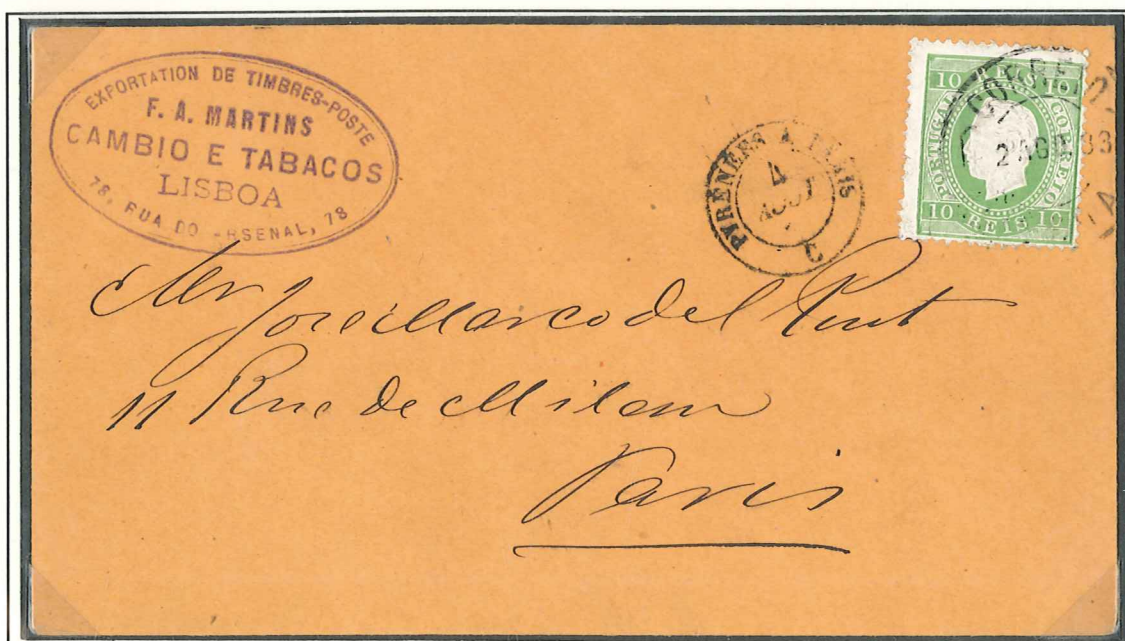 EXPORTATION DE TIMBRES-POSTE
F. A. MARTINS
CAMBIO E TABACOS
LISBOA
78, RUA DO RSENAL, 78
PYRÉNÉES A PARIS
4
AOUT
10 REIS 10
PORTUGAL
CORREIO
10 REIS 10
2 AGO
Mr José Marco del Pont
11 Rue de Milan
Paris